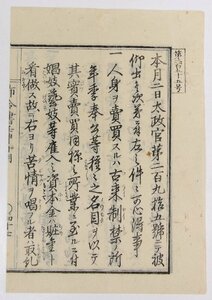 本月二日太政官第二百九拾五號ニテ被
仰出候次第ニ付左之件々可心得事
一人身ヲ賣買スルハ古来制禁ノ所
年季奉公等種々之名目ヲ以テ
其實賣買同樣之所業ニ至ルニ付
娼妓藝妓等雇入ノ資本金ハ贓金ト
看做ス故ニ右ヨリ苦情ヲ唱フル者ハ取糺